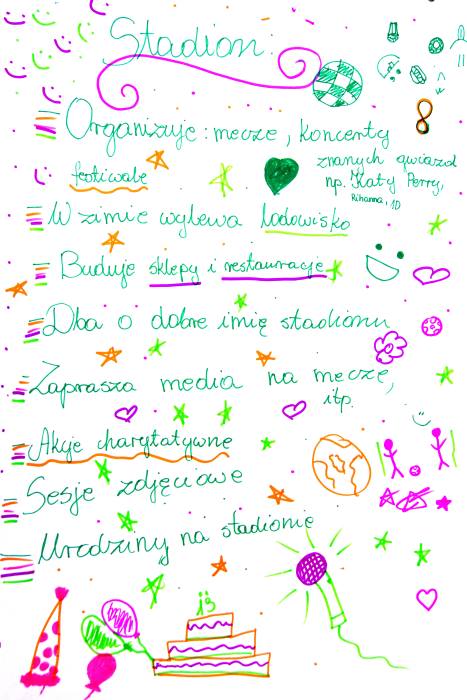 Stadion
Organizuje: mecze, koncerty
znanych gwiazd
festiwale
np. Katy Perry,
Rihanna, 1D
W zimie wylewa lodowisko
Buduje sklepy i restauracje
Dba o dobre imię stadionu
Zaprasza media na mecze,
itp.
Akcje charytatywne
Sesje zdjęciowe
Urodziny na stadionie
13